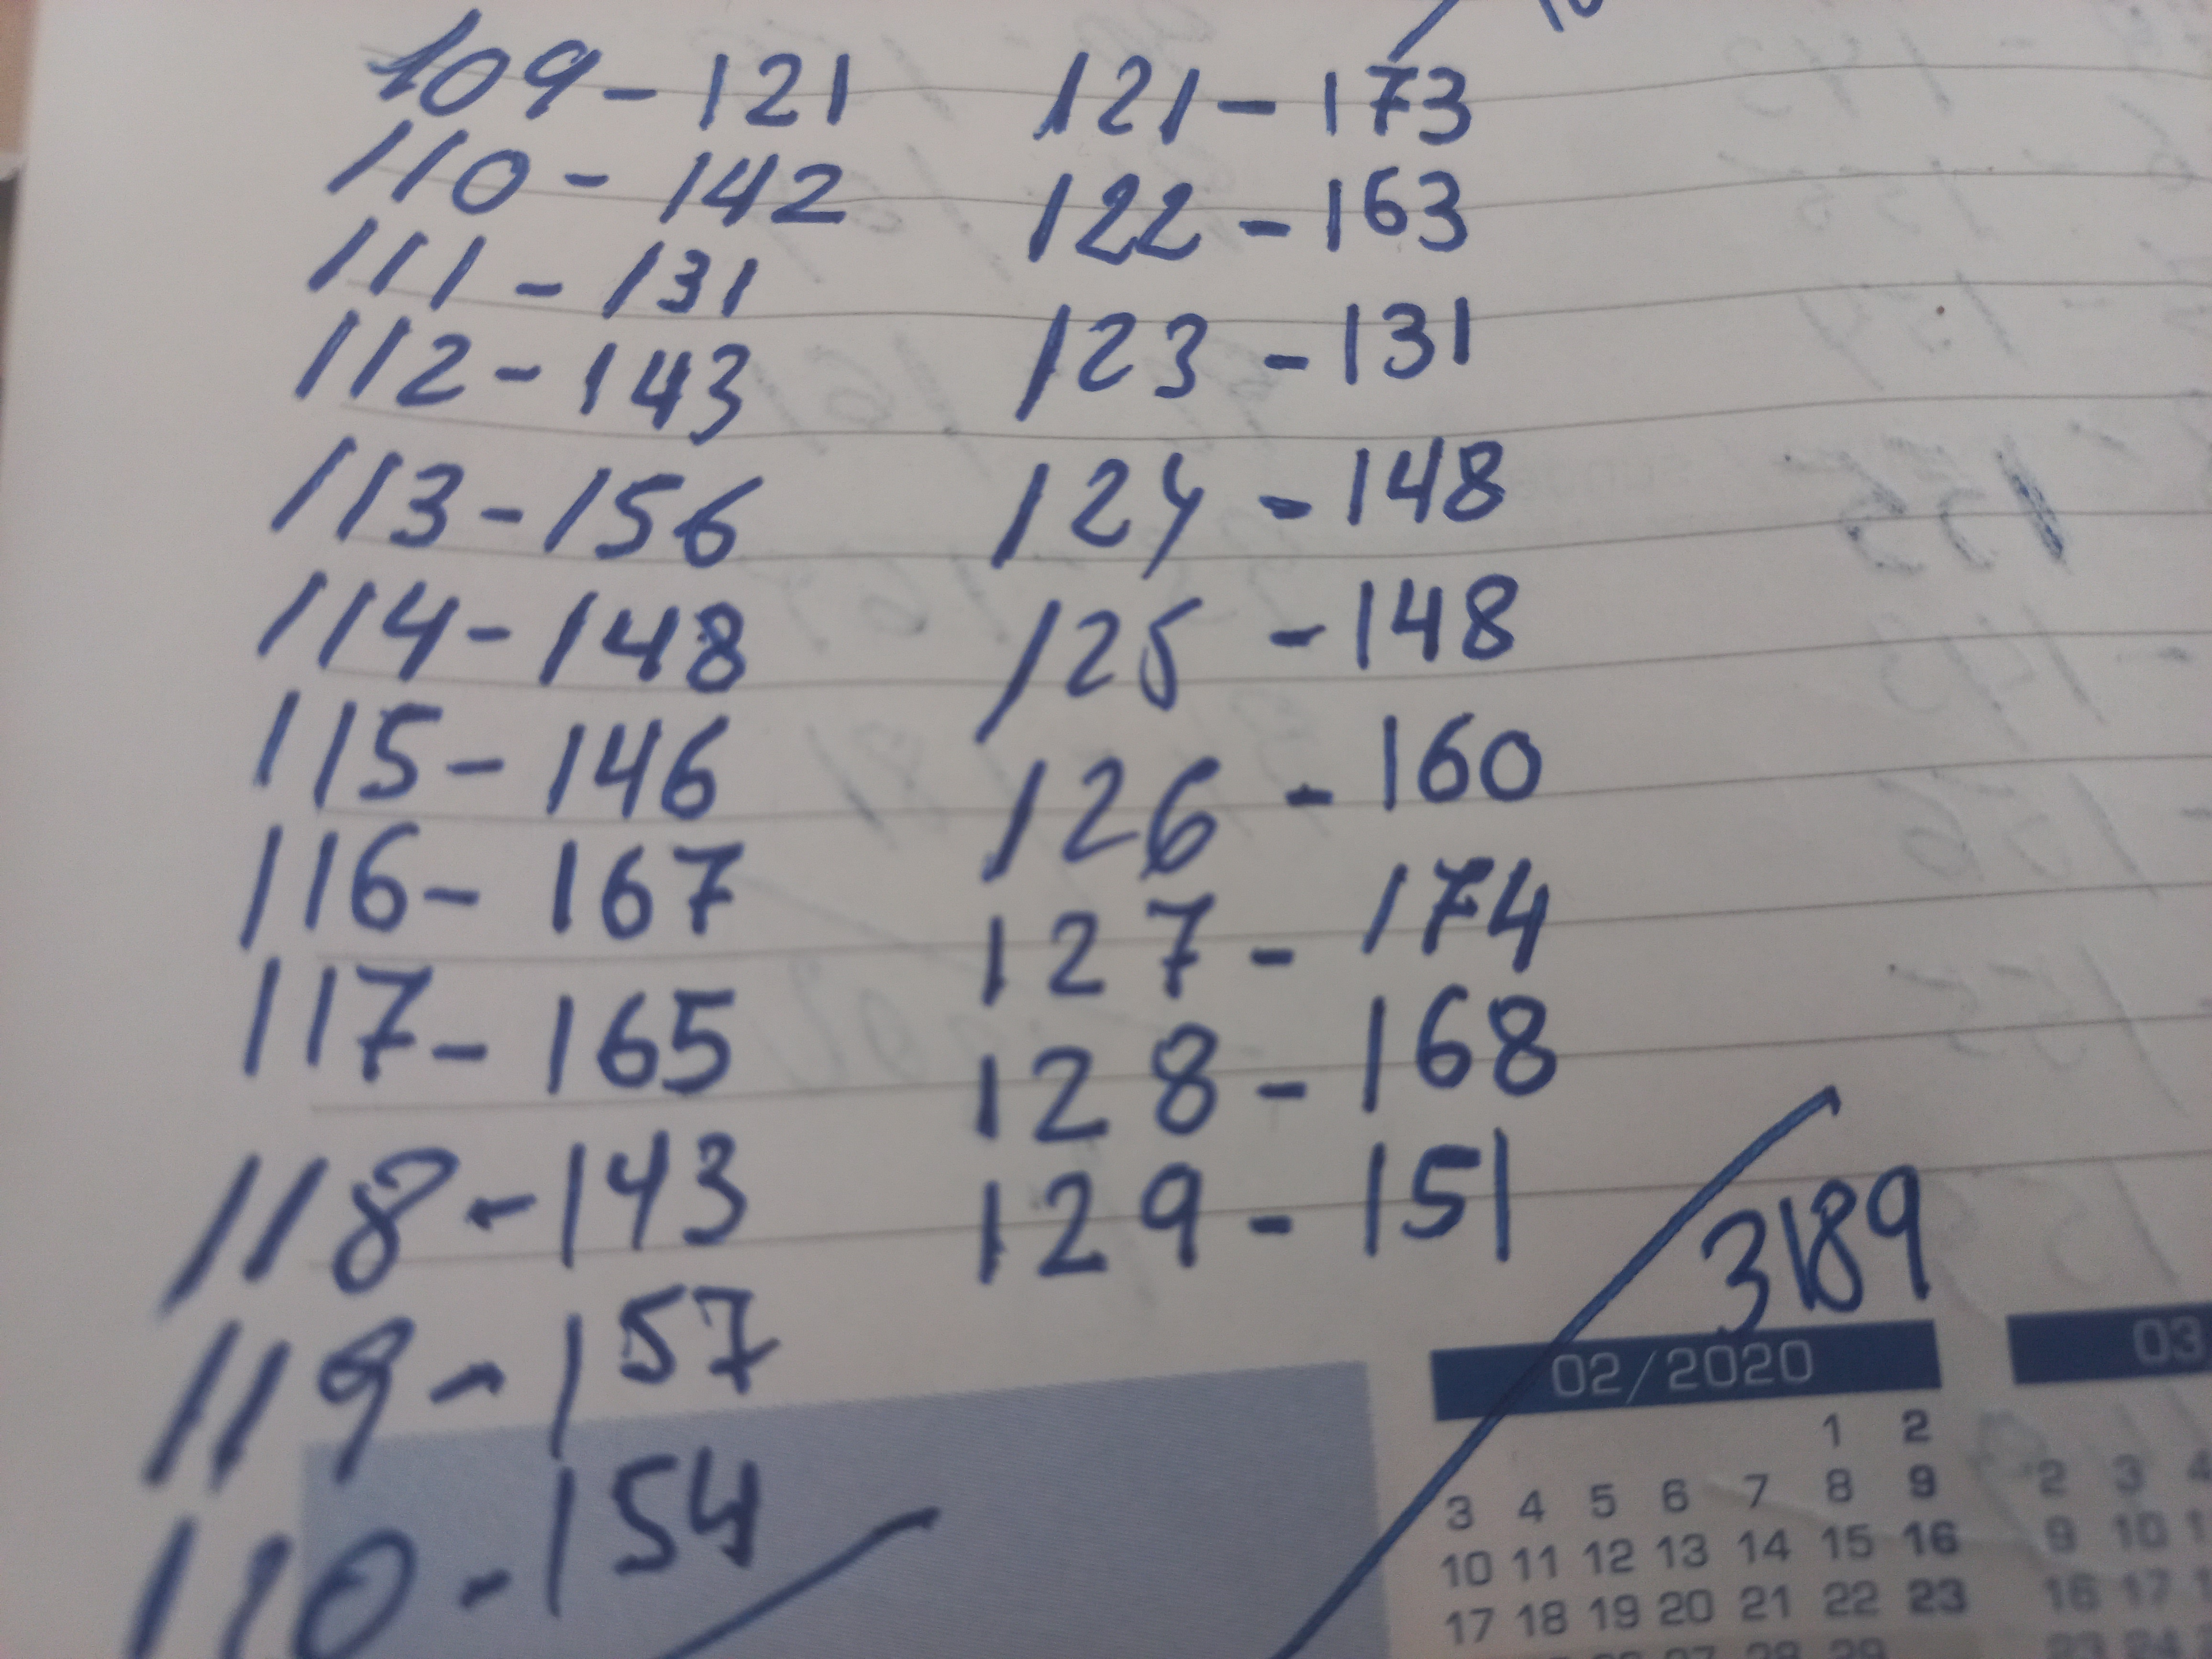 109 - 121
110 - 142
111 - 131
112 - 143
113 - 156
114 - 148
115 - 146
116 - 167
117 - 165
118 - 143
119 - 157
120 - 154
121 - 173
122 - 163
123 - 131
124 - 148
125 - 148
126 - 160
127 - 174
128 - 168
129 - 151
3189
02/2020
1 2
3 4 5 6 7 8 9
10 11 12 13 14 15 16
17 18 19 20 21 22 23
03
2 3 4
9 10
16 17